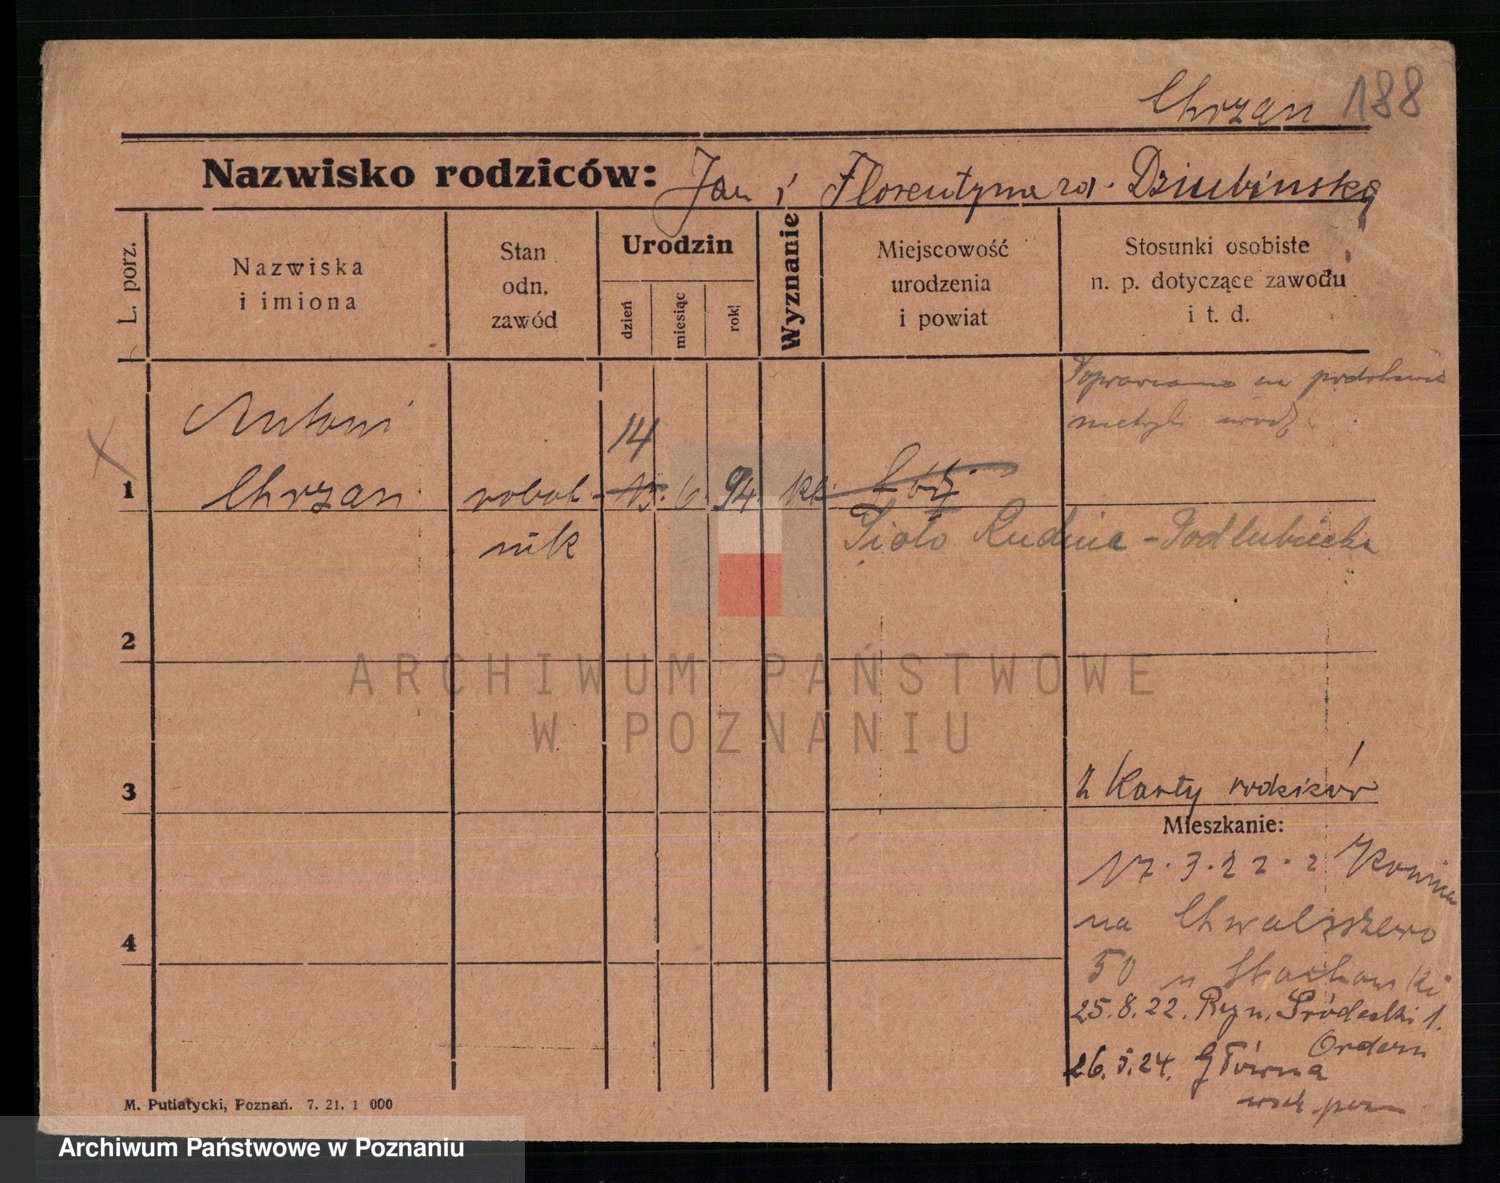 Chrzan 188
Nazwisko rodziców: Jan i Florentyna rd. Dziubinska
L. porz.
Nazwiska
i imiona
Stan
odn.
zawód
Urodzin
dzień
miesiąc
rok
Wyznanie
Miejscowość
urodzenia
i powiat
Stosunki osobiste
n. p. dotyczące zawodu
i t. d.
Poprawiono na podstawie
metryki urodz.
Antoni
14
1 Chrzan robot- 15. 6. 94. kt.
nik
Rudnia - Podlubiecka
2
ARCHIWUM PAŃSTWOWE
W POZNANIU
3
z Karty rodziców
Mieszkanie:
17.3.22. z Konina
na Chwaliszewo
4
50 u Stachowski
25.8.22. Ryn. Śródecki 1.
Ordern
26.5.24. Główna
wsch. pozn
M. Putiatycki, Poznań. 7. 21. 1 000
Archiwum Państwowe w Poznaniu